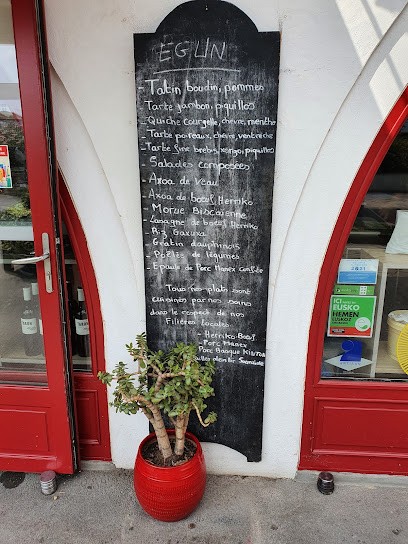 EGUN
- Tatin boudin, pommes
- Tarte jambon, piquillos
- Quiche courgette, chèvre, menthe
- Tarte poireaux, chèvre, ventrèche
- Tarte fine brebis, xorizo, piquillos
- Salades composées
- Axoa de veau
- Axoa de bœuf Herriko
- Morue Biscaienne
- Lasagne de bœuf Herriko
- Riz Gaxuxa
- Gratin dauphinois
- Poêlée de légumes
- Epaule de Porc Manex Confite
Tous nos plats sont
cuisinés par nos soins
dans le respect de nos
Filières locales
- Herriko-Bœuf
- Porc Manex
Porc Basque Kintoa
ICI
EUSKO
HEMEN
EUSKOZ